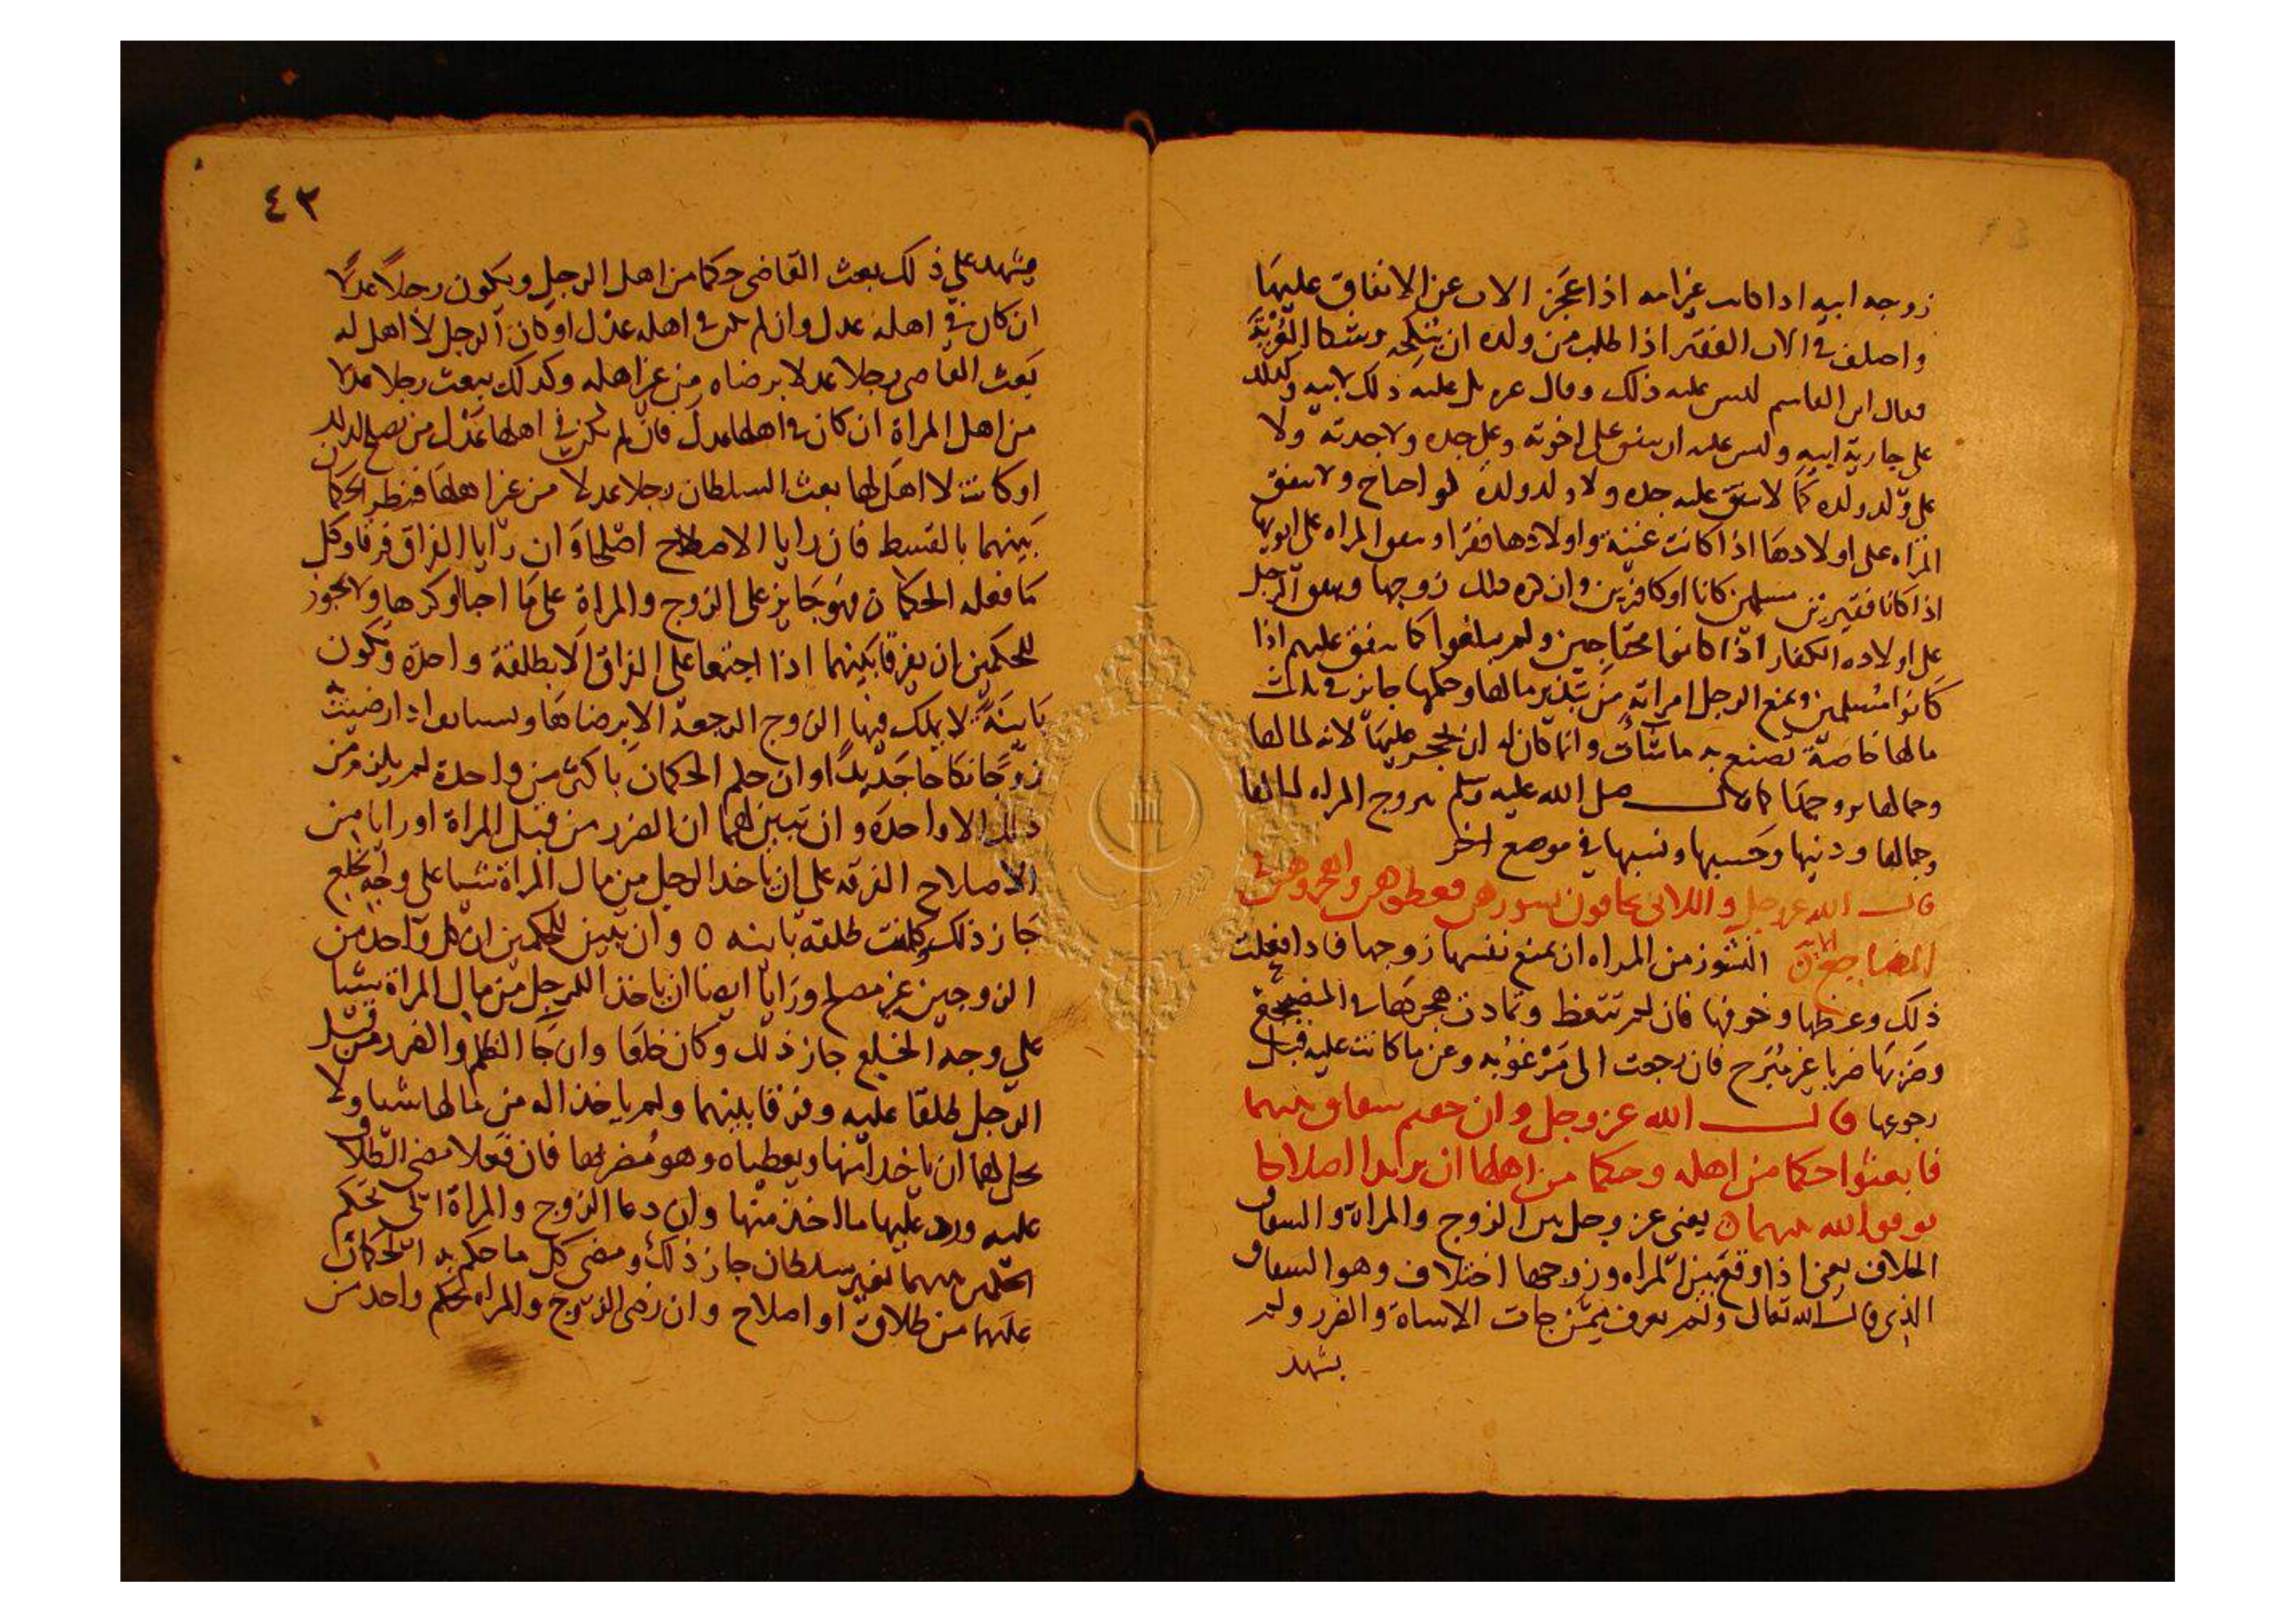 زوجه ابيه اذا كانت غير امه اذا عجز الاب عن الانفاق عليها
واختلف في الاب الفقير اذا طلب من ولده ان ينكحه وشكا العزبة
فقال ابن القاسم ليس عليه ذلك وقال غيره بل عليه ذلك لابيه وكذلك
على جارية ابيه وليس عليه ان ينفق على اخوته وعلى جده ولا جدته ولا
على ولد ولده كما لا ينفق عليه جده ولا ولد ولده لو احتاج ولا تنفق
المراه على اولادها اذا كانت غنية واولادها فقرا وتنفق المراه على ابويها
اذا كانا فقيرين مسلمين كانا او كافرين وان كره ذلك زوجها وينفق الرجل
على اولاده الكفار اذا كانوا محتاجين ولم يبلغوا كما ينفق عليهم اذا
كانوا مسلمين ويمنع الرجل امراته من تبذير مالها وحكمها جايز في ثلث
مالها خاصة تصنع به ما شات وانما كان له ان يحجر عليها لانه لمالها
وجمالها تزوجها صلى الله عليه وسلم تزوج المراه لمالها
وجمالها ودينها وحسبها ونسبها في موضع اخر
قال الله عز وجل واللاتي تخافون نشوزهن فعظوهن واهجروهن في
المضاجع الاية النشوز من المراه ان تمنع نفسها زوجها فاذا فعلت
ذلك وعظها وخوفها فان لم تتعظ وتمادت هجرها في المضجع
وضربها ضربا غير مبرح فان رجعت الى مرغوبه وعن ما كانت عليه قبل
رجوعها قال الله عز وجل وان خفتم شقاق بينهما
فابعثوا حكما من اهله وحكما من اهلها ان يريدا اصلاحا
يوفق الله بينهما يعني عز وجل بين الزوج والمراة والشقاق
الخلاف يعني اذا وقع بين المراه وزوجها اختلاف وهو الشقاق
الذي قال الله تعالى ولم يعرف ممن جات الاساة والضرر ولم
يشهد
٤٢
يشهد على ذلك بعث القاضي حكما من اهل الرجل ويكون رجلا عدلا
ان كان في اهله عدل وان لم يكن في اهله عدل او كان الرجل لا اهل له
بعث القاضي رجلا عدلا برضاه من غير اهله وكذلك يبعث رجلا عدلا
من اهل المراة ان كان في اهلها عدل فان لم يكن في اهلها عدل من يصلح لذلك
او كانت لا اهل لها بعث السلطان رجلا عدلا من غير اهلها فنظر الحكمان
بينهما بالقسط فان رايا الاصلاح اصلحا وان رايا الفراق فرقا وكل
ما فعله الحكمان فهو جايز على الزوج والمراة على ما احبا او كرها ولا يجوز
للحكمين ان يفرقا بينهما اذا اجتمعا على الفراق الا بطلقة واحدة وتكون
باينة لا يملك فيها الزوج الرجعة الا برضاها اذا رضيت
زوجا نكاحا جديدا وان حكم الحكمان باكثر من واحدة لم يلزم من
ذلك الا واحدة وان تبين لهما ان الضرر من قبل المراة او رايا من
الاصلاح الفرقه على ان ياخذ الرجل من مال المراة شيا على وجه الخلع
جاز ذلك وكانت طلقة باينه ٥ وان تبين للحكمين ان كل واحد من
الزوجين غير مصلح ورايا ايضا ان ياخذ الرجل من مال المراة شيا
على وجه الخلع جاز ذلك وكان خلعا وان جا الظلم والضرر من قبل
الرجل طلقا عليه وفرقا بينهما ولم ياخذا له من مالها شيا ولا
يحل لهما ان ياخذا منها ويعطياه وهو مضر بها فان فعلا مضى الطلاق
عليه ورد عليها ما اخذ منها وان دعا الزوج والمراة الى تحكيم
الحكمين بينهما بغير سلطان جاز ذلك ومضى كل ما حكم به الحكمان
عليهما من طلاق او اصلاح وان رضى الزوج والمراه بحكم واحد من